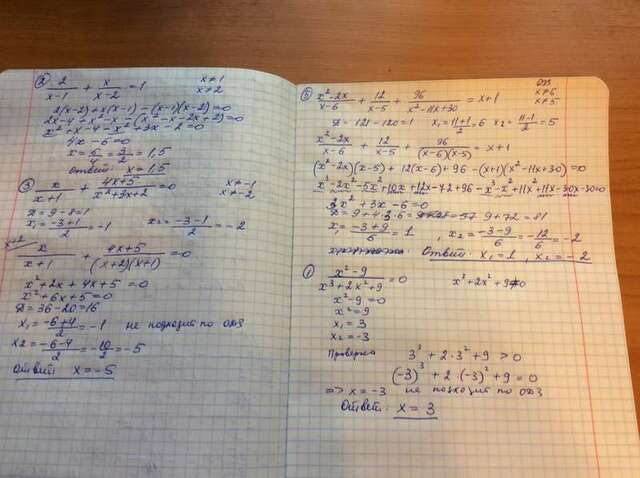 ② 2/(x-1) + x/(x-2) = 1   x≠1
x≠2
2(x-2)+x(x-1)-(x-1)(x-2)=0
2x-4+x²-x-(x²-x-2x+2)=0
x²+x-4-x²+3x-2=0
4x-6=0
x=6/4=3/2=1,5
Ответ: x=1,5
③ x/(x+1) + (4x+5)/(x²+3x+2) = 0   x≠-1
x≠-2
D=9-8=1
x₁=(-3+1)/2=-1   x₂=(-3-1)/2=-2
x+2
x/(x+1) + (4x+5)/((x+2)(x+1)) = 0
x²+2x+4x+5=0
x²+6x+5=0
D=36-20=16
x₁=(-6+4)/2=-1 не подходит по ОДЗ
x₂=(-6-4)/2=-10/2=-5
Ответ x=-5
ОДЗ
x≠6
x≠5
⑤ (x²-2x)/(x-6) + 12/(x-5) + 96/(x²-11x+30) = x+1
D=121-120=1   x₁=(11+1)/2=6   x₂=(11-1)/2=5
(x²-2x)/(x-6) + 12/(x-5) + 96/((x-6)(x-5)) = x+1
(x²-2x)(x-5)+12(x-6)+96-(x+1)(x²-11x+30)=0
x³-2x²-5x²+10x+12x-72+96-x³-x²+11x²+11x-30x-30=0
3x²+3x-6=0
D=9+4·3·6=9+72=81
x₁=(-3+9)/6=1 , x₂=(-3-9)/6=-12/6=-2
Ответ: x₁=1, x₂=-2
① (x²-9)/(x³+2x²+9)=0   x³+2x²+9≠0
x²-9=0
x²=9
x₁=3
x₂=-3
Проверка   3³+2·3²+9>0
(-3)³+2·(-3)²+9=0
=> x=-3 не подходит по ОДЗ
Ответ: x=3